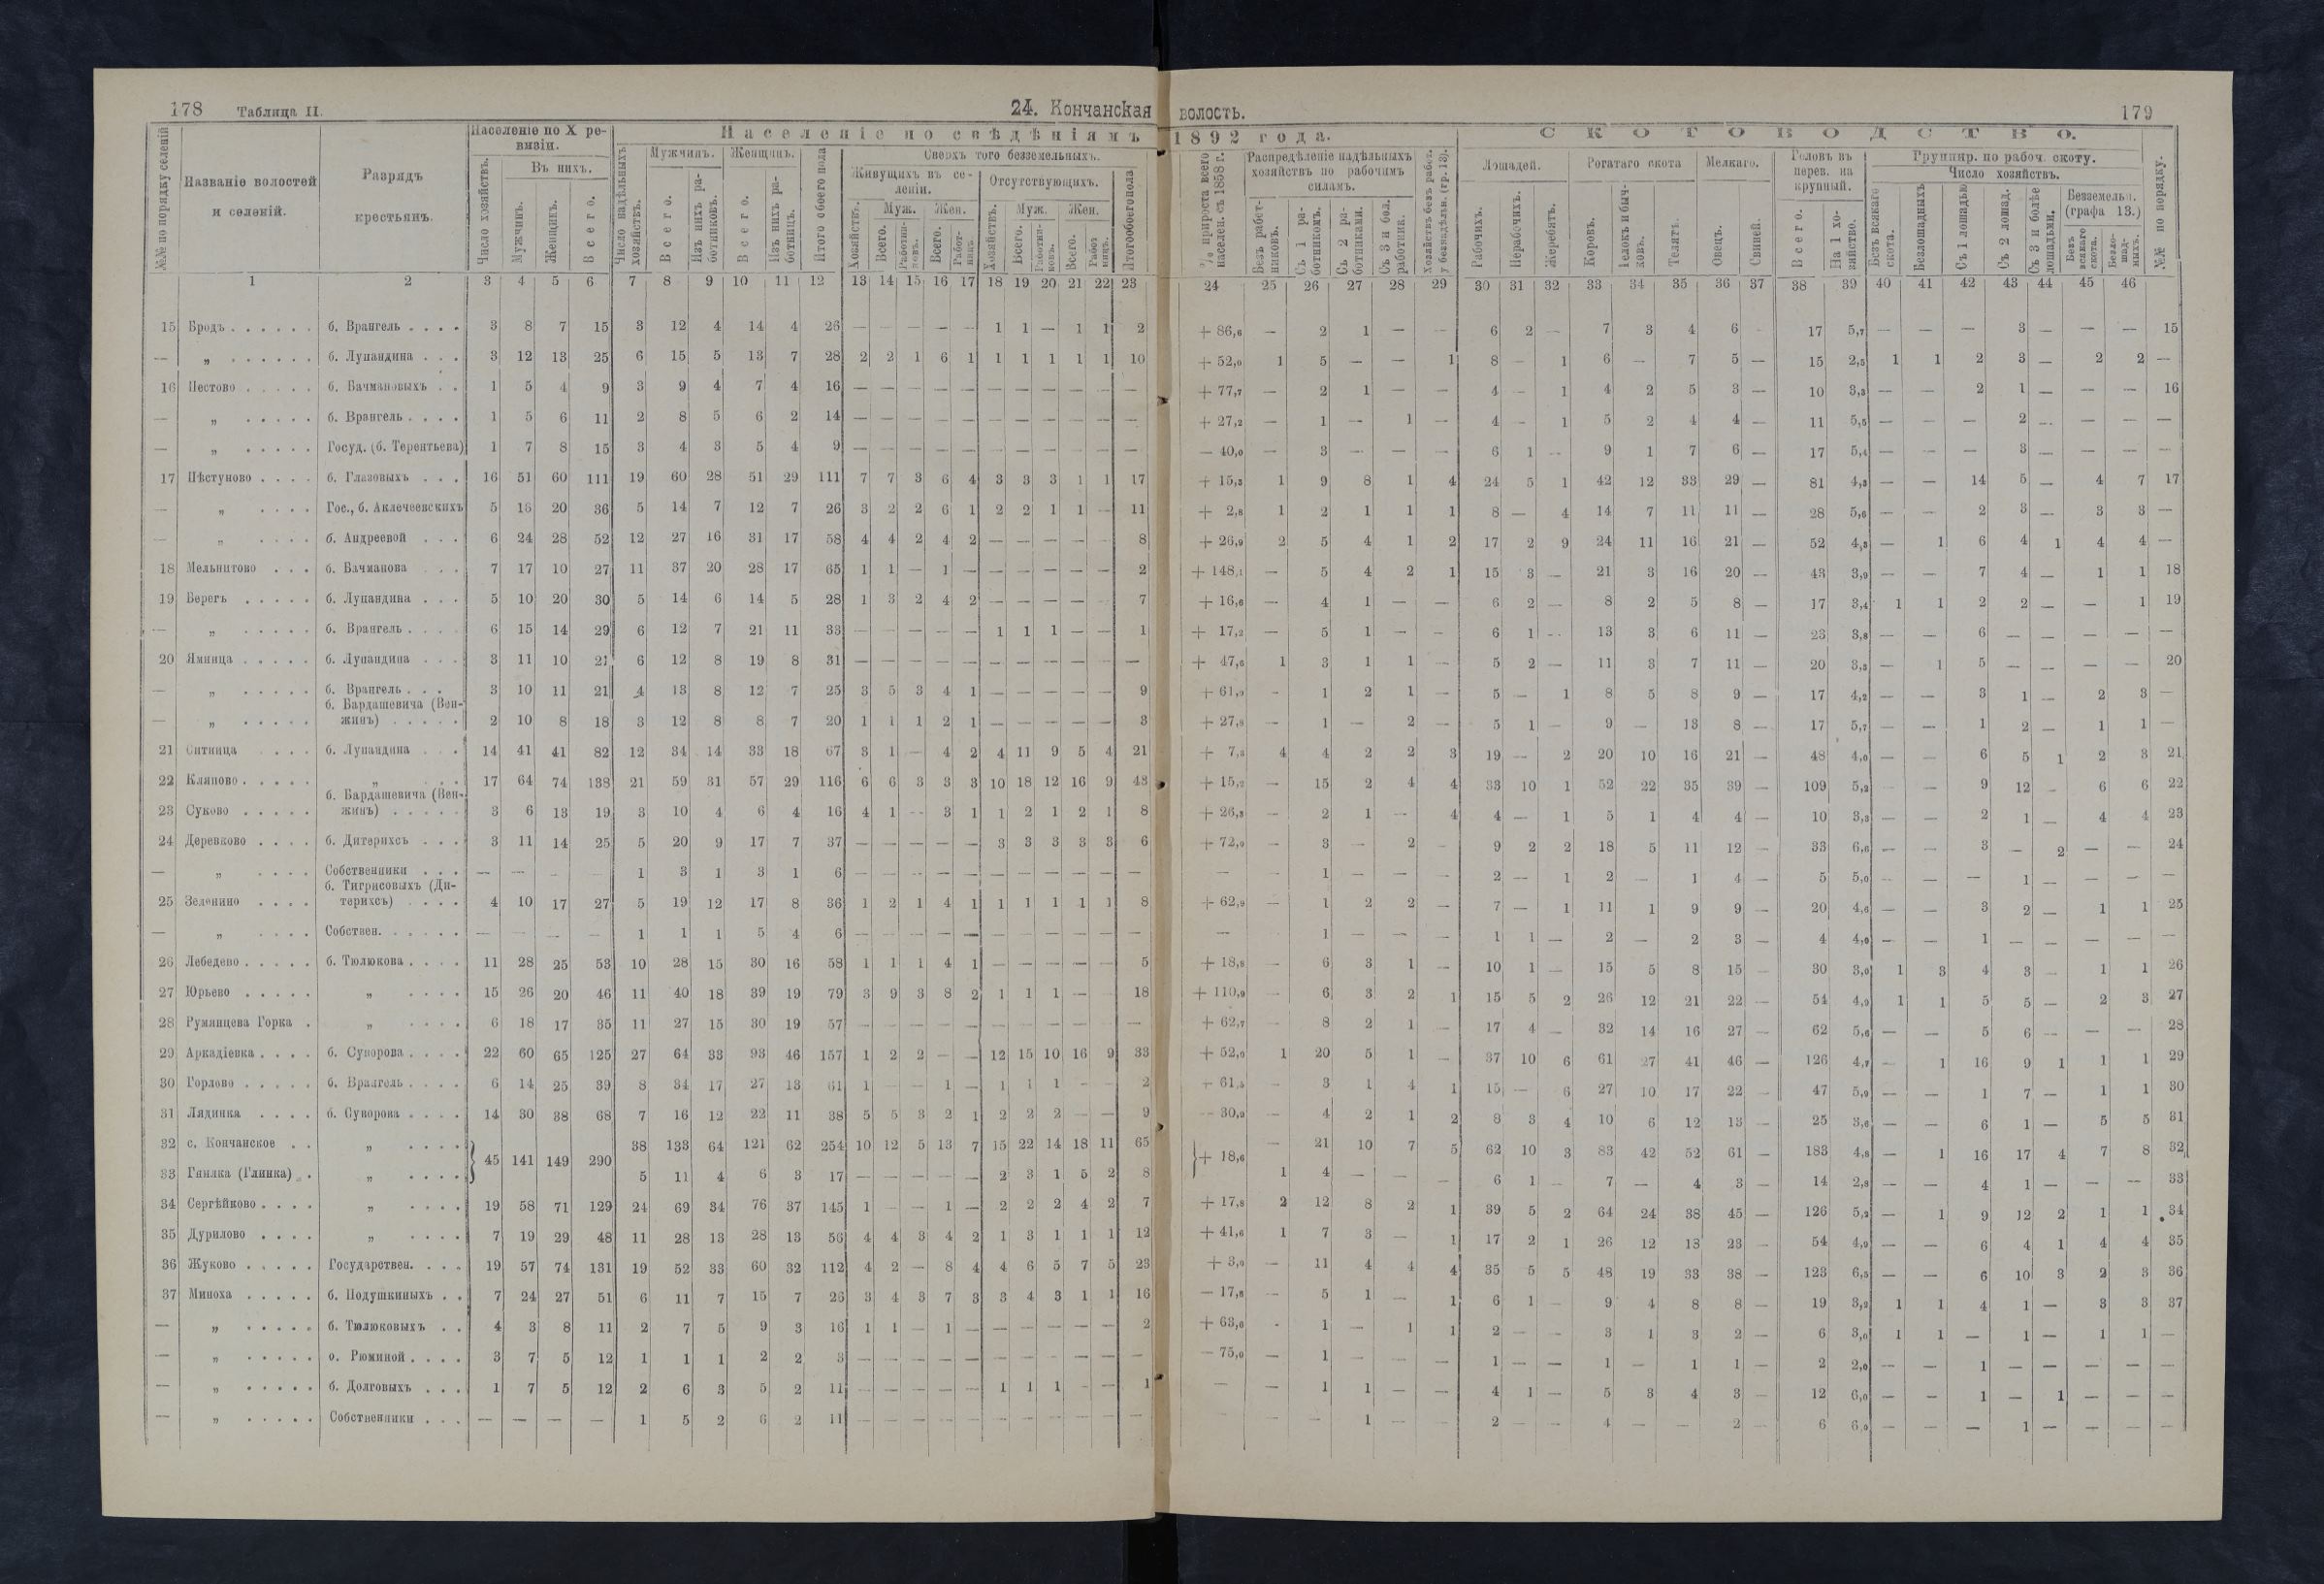 178 Таблица II. 24. Кончанская волость. 179
№№ по порядку селеній
Названіе волостей и селеній.
Разрядъ крестьянъ.
Населеніе по X ревизіи.
Число хозяйствъ.
Въ нихъ.
Мужчинъ.
Женщинъ.
Всего.
Населеніе по свѣдѣніямъ 1892 года.
Число надѣльныхъ хозяйствъ.
Мужчинъ.
Всего.
Изъ нихъ работниковъ.
Женщинъ.
Всего.
Изъ нихъ работницъ.
Итого обоего пола
Сверхъ того безземельныхъ.
Живущихъ въ селеніи.
Хозяйствъ.
Муж.
Жен.
Отсутствующихъ.
Хозяйствъ.
Муж.
Жен.
Итого обоего пола
% прироста всего населен. съ 1858 г.
Распредѣленіе надѣльныхъ хозяйствъ по рабочимъ силамъ.
Безъ работниковъ.
Съ 1 работникомъ.
Съ 2 работниками.
Съ 3 и бол. работник.
Хозяйствъ безъ работ. у безнадѣльн. (гр. 13).
СКОТОВОДСТВО.
Лошадей.
Рабочихъ.
Нерабочихъ.
Жеребятъ.
Рогатаго скота
Коровъ.
Телокъ и бычковъ.
Телятъ.
Мелкаго.
Овецъ.
Свиней.
Головъ въ перев. на крупный.
Всего.
На 1 хозяйство.
Группир. по рабоч. скоту.
Число хозяйствъ.
Безъ всякаго скота.
Безлошадныхъ
Съ 1 лошадью
Съ 2 лошад.
Съ 3 и болѣе лошадьми.
Безземельн. (графа 13.)
Безъ всякаго скота.
Безлошадныхъ.
№№ по порядку.
1 2 3 4 5 6 7 8 9 10 11 12 13 14 15 16 17 18 19 20 21 22 23 24 25 26 27 28 29 30 31 32 33 34 35 36 37 38 39 40 41 42 43 44 45 46
15 Бродъ . . . . . . б. Врангель . . . . 3 8 7 15 3 12 4 14 4 26 — — — — — 1 1 — 1 1 2 + 86,6 — 2 1 — — 6 2 — 7 3 4 6 17 5,7 — — — 3 — — — 15
— „ . . . . . . б. Лупандина . . . 3 12 13 25 6 15 5 13 7 28 2 2 1 6 1 1 1 1 1 1 10 + 52,0 1 5 — — 1 8 — 1 6 — 7 5 — 15 2,5 1 1 2 3 — 2 2 —
16 Пестово . . . . . б. Бачмановыхъ . . 1 5 4 9 3 9 4 7 4 16 — — — — — — — — — — — + 77,7 — 2 1 — — 4 — 1 4 2 5 3 — 10 3,3 — — 2 1 — — — 16
— „ . . . . . б. Врангель . . . . 1 5 6 11 2 8 5 6 2 14 — — — — — — — — — — — + 27,2 — 1 — 1 — 4 — 1 5 2 4 4 — 11 5,5 — — — 2 — — — —
— „ . . . . . Госуд. (б. Терентьева) 1 7 8 15 3 4 3 5 4 9 — — — — — — — — — — — — 40,0 — 3 — — — 6 1 — 9 1 7 6 — 17 5,4 — — — 3 — — — —
17 Пѣстуново . . . . б. Глазовыхъ . . . 16 51 60 111 19 60 28 51 29 111 7 7 3 6 4 3 3 3 1 1 17 + 15,3 1 9 8 1 4 24 5 1 42 12 33 29 — 81 4,3 — — 14 5 — 4 7 17
— „ . . . . Гос., б. Аклечеевскихъ 5 16 20 36 5 14 7 12 7 26 3 2 2 6 1 2 2 1 1 — 11 + 2,8 1 2 1 1 1 8 — 4 14 7 11 11 — 28 5,6 — — 2 3 — 3 3 —
— „ . . . . б. Андреевой . . . 6 24 28 52 12 27 16 31 17 58 4 4 2 4 2 — — — — — 8 + 26,9 2 5 4 1 2 17 2 9 24 11 16 21 — 52 4,3 — 1 6 4 1 4 4 —
18 Мельнитово . . . б. Бачманова . . . 7 17 10 27 11 37 20 28 17 65 1 1 — 1 — — — — — — 2 + 148,1 — 5 4 2 1 15 3 — 21 3 16 20 — 43 3,9 — — 7 4 — 1 1 18
19 Берегъ . . . . . б. Лупандина . . . 5 10 20 30 5 14 6 14 5 28 1 3 2 4 2 — — — — — 7 + 16,6 — 4 1 — — 6 2 — 8 2 5 8 — 17 3,4 1 1 2 2 — — 1 19
— „ . . . . . б. Врангель . . . . 6 15 14 29 6 12 7 21 11 33 — — — — — 1 1 1 — — 1 + 17,2 — 5 1 — — 6 1 — 13 3 6 11 — 23 3,8 — — 6 — — — — —
20 Ямница . . . . . б. Лупандина . . . 3 11 10 21 6 12 8 19 8 31 — — — — — — — — — — — + 47,6 1 3 1 1 — 5 2 — 11 3 7 11 — 20 3,3 — 1 5 — — — — 20
— „ . . . . . б. Врангель . . . 3 10 11 21 4 13 8 12 7 25 3 5 3 4 1 — — — — — 9 + 61,9 — 1 2 1 — 5 — 1 8 5 8 9 — 17 4,2 — — 3 1 — 2 3 —
б. Бардашевича (Вен-
— „ . . . . . жинъ) . . . . . 2 10 8 18 3 12 8 8 7 20 1 1 1 2 1 — — — — — 3 + 27,8 — 1 — 2 — 5 1 — 9 — 13 8 — 17 5,7 — — 1 2 — 1 1 —
21 Ситница . . . . б. Лупандина . . . 14 41 41 82 12 34 14 33 18 67 3 1 — 4 2 4 11 9 5 4 21 + 7,3 4 4 2 2 3 19 — 2 20 10 16 21 — 48 4,0 — — 6 5 1 2 3 21
22 Кляпово . . . . . „ . . . 17 64 74 138 21 59 31 57 29 116 6 6 3 3 3 10 18 12 16 9 43 + 15,2 — 15 2 4 4 33 10 1 52 22 35 39 — 109 5,2 — — 9 12 — 6 6 22
б. Бардашевича (Вен-
23 Суково . . . . . жинъ) . . . . . 3 6 13 19 3 10 4 6 4 16 4 1 — 3 1 1 2 1 2 1 8 + 26,3 — 2 1 — 4 4 — 1 5 1 4 4 — 10 3,3 — — 2 1 — 4 4 23
24 Деревково . . . . б. Дитерихсъ . . . 3 11 14 25 5 20 9 17 7 37 — — — — — 3 3 3 3 3 6 + 72,0 — 3 — 2 — 9 2 2 18 5 11 12 — 33 6,6 — — 3 — 2 — — 24
— „ . . . . Собственники . . . — — — — 1 3 1 3 1 6 — — — — — — — — — — — — — 1 — — — 2 — 1 2 — 1 4 — 5 5,0 — — — 1 — — — —
б. Тигрисовыхъ (Ди-
25 Зеленино . . . . терихсъ) . . . . 4 10 17 27 5 19 12 17 8 36 1 2 1 4 1 1 1 1 1 1 8 + 62,9 — 1 2 2 — 7 — 1 11 1 9 9 — 20 4,6 — — 3 2 — 1 1 25
— „ . . . . Собствен. . . . . . — — — — 1 1 1 5 4 6 — — — — — — — — — — — — — 1 — — — 1 1 — 2 — 2 3 — 4 4,0 — — 1 — — — — —
26 Лебедево . . . . . б. Тюлюкова . . . . 11 28 25 53 10 28 15 30 16 58 1 1 1 4 1 — — — — — 5 + 18,8 — 6 3 1 — 10 1 — 15 5 8 15 — 30 3,0 1 3 4 3 — 1 1 26
27 Юрьево . . . . . „ . . . . 15 26 20 46 11 40 18 39 19 79 3 9 3 8 2 1 1 1 — — 18 + 110,9 — 6 3 2 1 15 5 2 26 12 21 22 — 54 4,9 1 1 5 5 — 2 3 27
28 Румянцева Горка . „ . . . . 6 18 17 35 11 27 15 30 19 57 — — — — — — — — — — — + 62,7 — 8 2 1 — 17 4 — 32 14 16 27 — 62 5,6 — — 5 6 — — — 28
29 Аркадіевка . . . . б. Суворова . . . . 22 60 65 125 27 64 33 93 46 157 1 2 2 — — 12 15 10 16 9 33 + 52,0 1 20 5 1 — 37 10 6 61 27 41 46 — 126 4,7 — 1 16 9 1 1 1 29
30 Горлово . . . . . б. Врангель . . . . 6 14 25 39 8 34 17 27 13 61 1 — — 1 — 1 1 1 — — 2 + 61,5 — 3 1 4 1 15 — 6 27 10 17 22 — 47 5,9 — — 1 7 — 1 1 30
31 Лядинка . . . . б. Суворова . . . . 14 30 38 68 7 16 12 22 11 38 5 5 3 2 1 2 2 2 — — 9 — 30,9 — 4 2 1 2 8 3 4 10 6 12 13 — 25 3,6 — — 6 1 — 5 5 31
32 с. Кончанское . . „ . . . . 38 133 64 121 62 254 10 12 5 13 7 15 22 14 18 11 65 — 21 10 7 5 62 10 3 83 42 52 61 — 183 4,8 — 1 16 17 4 7 8 32
} 45 141 149 290 } + 18,6
33 Гнилка (Глинка) . . „ . . . . 5 11 4 6 3 17 — — — — — 2 3 1 5 2 8 1 4 — — — 6 1 — 7 — 4 3 — 14 2,8 — — 4 1 — — — 33
34 Сергѣйково . . . . „ . . . . 19 58 71 129 24 69 34 76 37 145 1 — — 1 — 2 2 2 4 2 7 + 17,8 2 12 8 2 1 39 5 2 64 24 38 45 — 126 5,2 — 1 9 12 2 1 1 34
35 Дурилово . . . . „ . . . . 7 19 29 48 11 28 13 28 13 56 4 4 3 4 2 1 3 1 1 1 12 + 41,6 1 7 3 — 1 17 2 1 26 12 13 23 — 54 4,9 — — 6 4 1 4 4 35
36 Жуково . . . . . Государствен. . . . 19 57 74 131 19 52 33 60 32 112 4 2 — 8 4 4 6 5 7 5 23 + 3,0 — 11 4 4 4 35 5 5 48 19 33 38 — 123 6,5 — — 6 10 3 2 3 36
37 Миноха . . . . . б. Подушкиныхъ . . 7 24 27 51 6 11 7 15 7 26 3 4 3 7 3 3 4 3 1 1 16 — 17,8 — 5 1 — 1 6 1 — 9 4 8 8 — 19 3,2 1 1 4 1 — 3 3 37
— „ . . . . . б. Тюлюковыхъ . . 4 3 8 11 2 7 5 9 3 16 1 1 — 1 — — — — — — 2 + 63,0 - 1 — 1 1 2 — — 3 1 3 2 — 6 3,0 1 1 — 1 — 1 1 —
— „ . . . . . о. Рюминой . . . . 3 7 5 12 1 1 1 2 2 3 — — — — — — — — — — — — 75,0 — 1 — — — 1 — — 1 — 1 1 — 2 2,0 — — 1 — — — — —
— „ . . . . . б. Долговыхъ . . . 1 7 5 12 2 6 3 5 2 11 — — — — — 1 1 1 — — 1 — — 1 1 — — 4 1 — 5 3 4 3 — 12 6,0 — — 1 — 1 — — —
— „ . . . . . Собственники . . . — — — — 1 5 2 6 2 11 — — — — — — — — — — — — — — 1 — — 2 — — 4 — — 2 — 6 6,0 — — — 1 — — — —